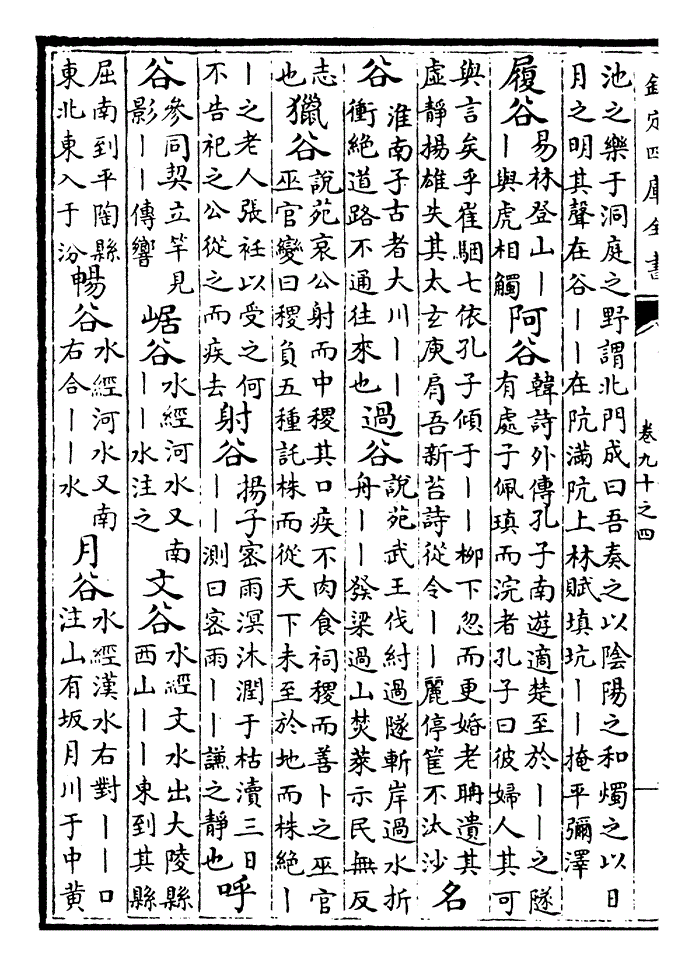 欽定四庫全書
卷九十之四
池之樂于洞庭之野謂北門成曰吾奏之以陰陽之和燭之以日月之明其聲在谷丨丨在阬滿阬上林賦填坑丨丨掩平彌澤
履谷易林登山丨丨與虎相觸阿谷韓詩外傳孔子南遊適楚至於丨丨之隧有處子佩瑱而浣者孔子曰彼婦人其可
與言矣乎崔駰七依孔子傾于丨丨柳下忽而更婚老聃遺其虛靜揚雄失其太玄庾肩吾新苔詩從令丨丨麗停筐不汰沙名
谷淮南子古者大川丨丨衝絕道路不通往來也過谷說苑武王伐紂過隧斬岸過水折舟丨丨發梁過山焚萊示民無反
志也獵谷說苑哀公射而中稷其口疾不肉食祠稷而善卜之巫官巫官變曰稷負五種託株而從天下未至於地而株絕丨
丨之老人張衽以受之何不告祀之公從之而疾去射谷揚子密雨溟沐潤于枯瀆三日丨丨測曰密雨丨丨謙之靜也呼
谷參同契立竿見影丨丨傳響崌谷水經河水又南丨丨水注之文谷水經文水出大陵縣西山丨丨東到其縣
屈南到平陶縣東北東入于汾暢谷水經河水又南右合丨丨水月谷水經漢水右對丨丨口注山有坂月川于中黃